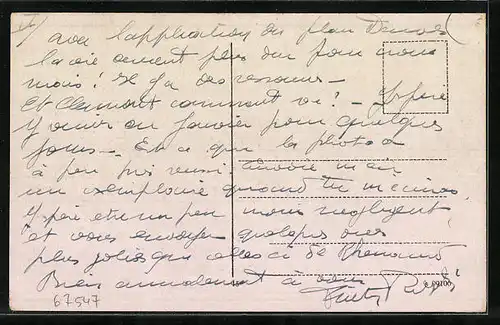 avec l'application du plan
la vie devient plus dure pour nous
mais ! Il y a des
Et Clermont comment va ? - J'espère
y venir en Janvier pour quelques
jours - Est ce que la photo a
à peu près réussi envoie m'en
un exemplaire quand tu m'écriras.
J'espère être un peu moins négligent
et vous envoyer quelques vues
plus jolies que celles ci de
Bien amicalement à vous
67547
09100